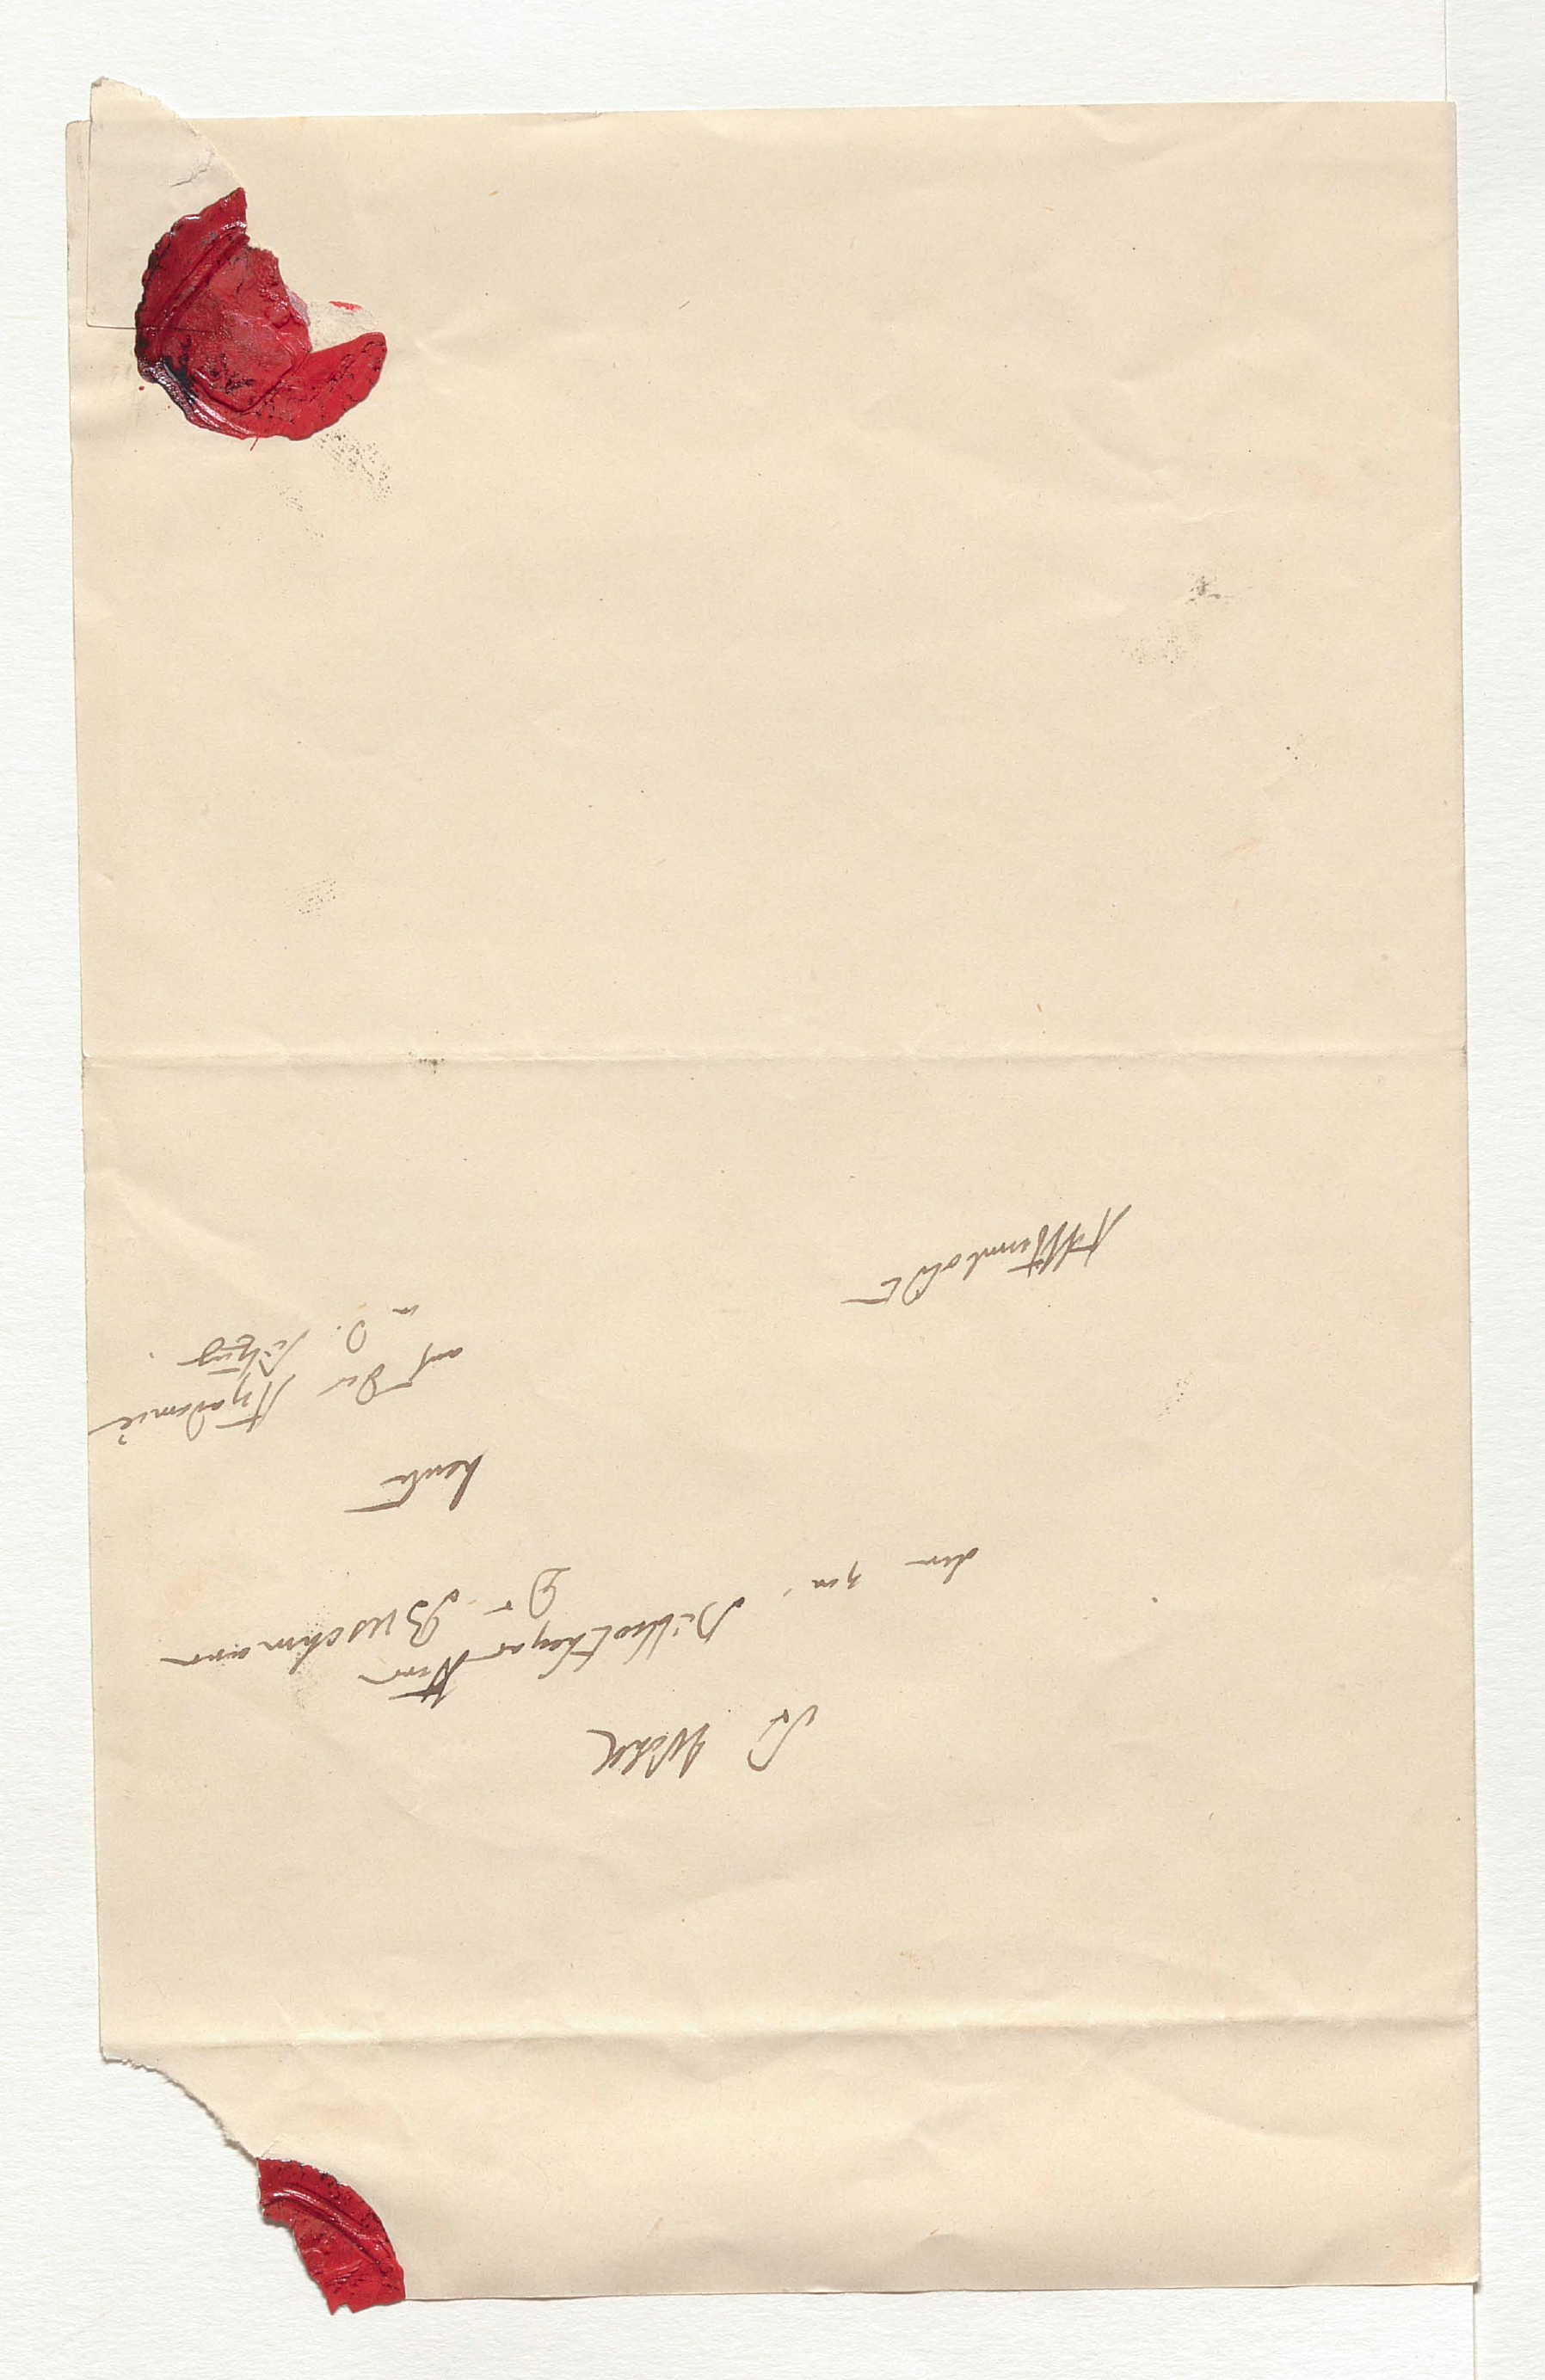 Sr Wohl
den kön. Bibliothekar Herrn
Dr Buschmann
heute
auf der Akademie
n. d. Sitzung.
AvHumboldt